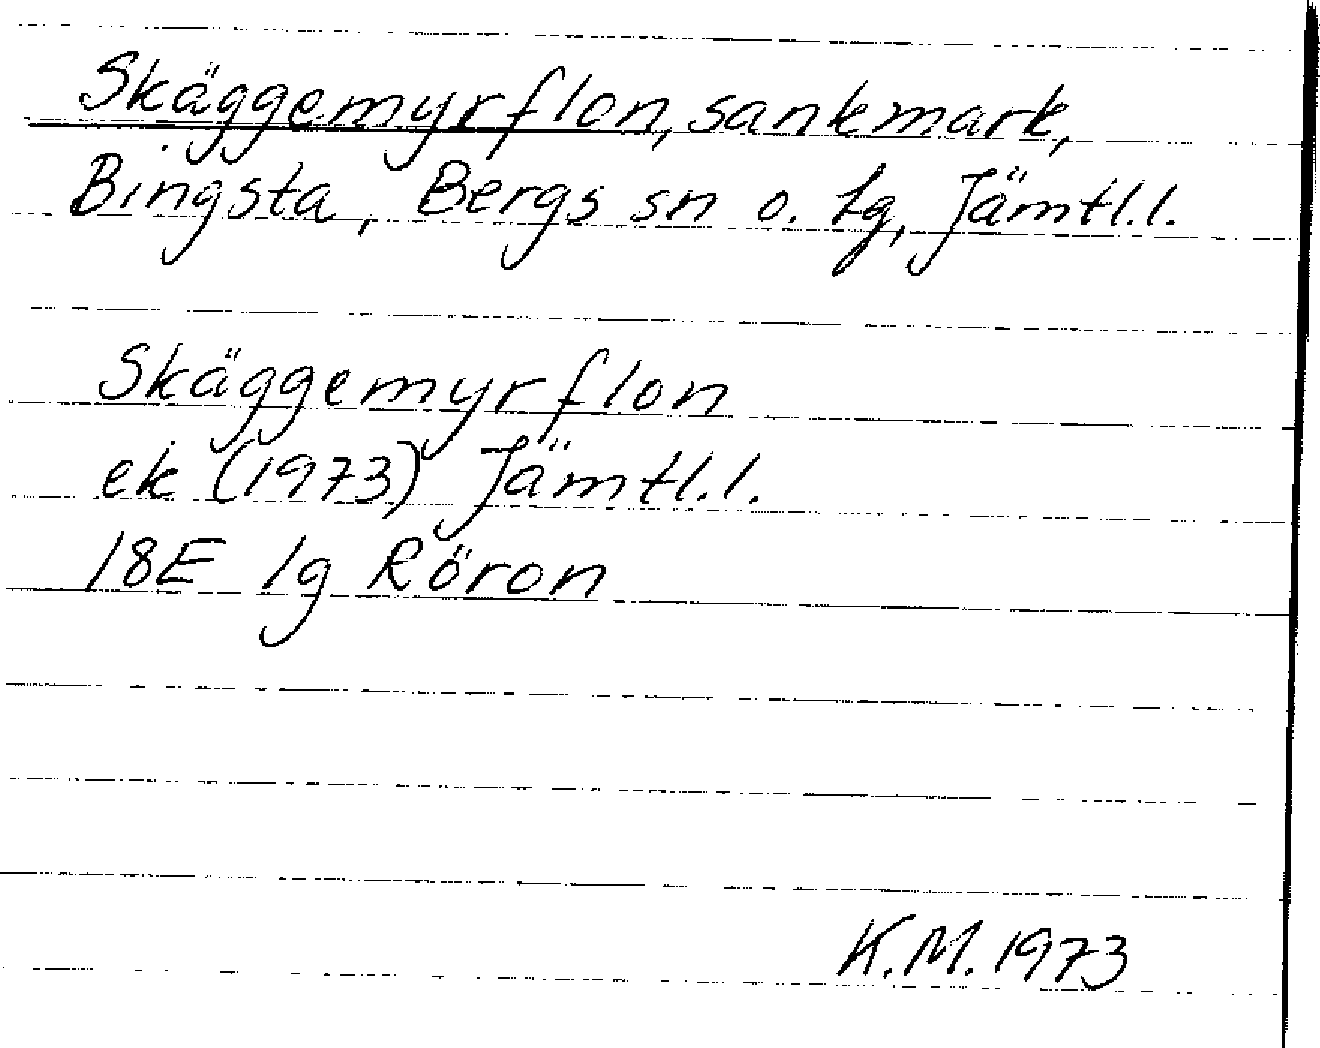 Skäggemyrflon, sankmark,
Bingsta, Bergs sn o. tg, Jämtl.l.
Skäggemyrflon
ek (1973) Jämtl.l.
18E 1g Röron
K.M. 1973